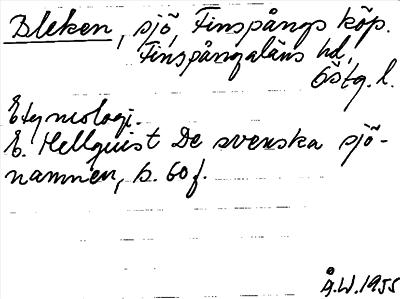 Bleken, sjö, Finspångs köp.
Finspångaläns hd,
Östg. l.
Etymologi.
E. Hellquist De svenska sjö-
namnen, s. 60 f.
Å.W. 1955